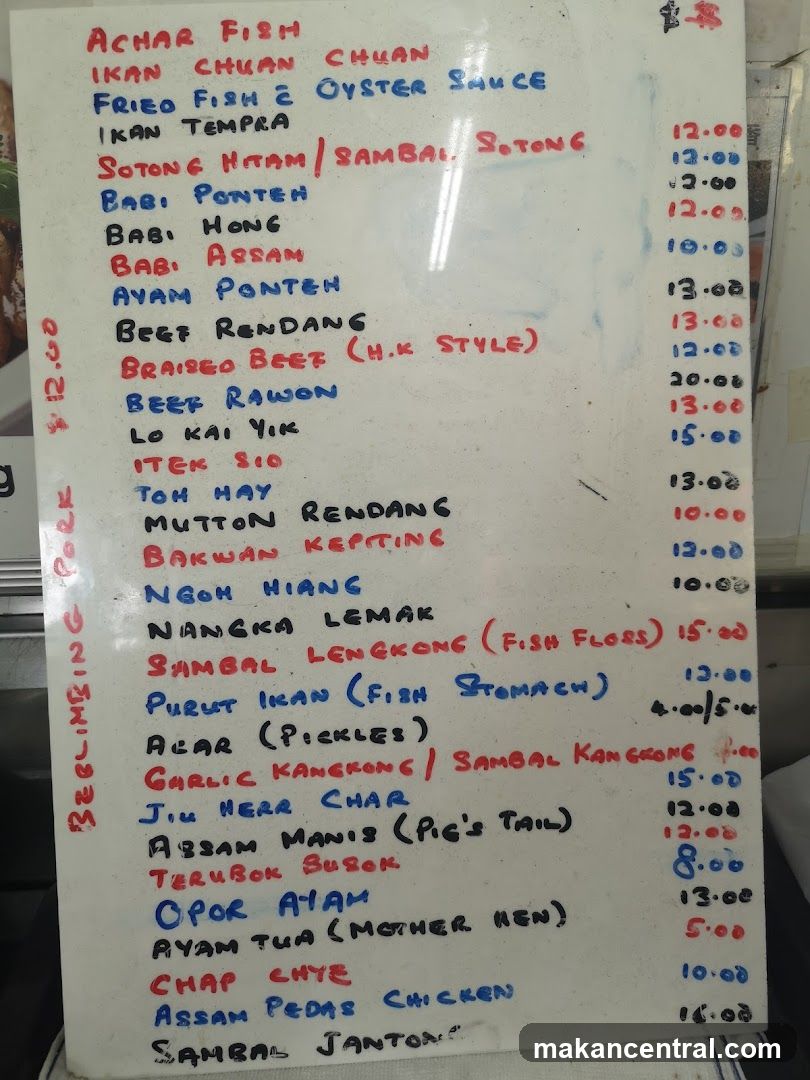 $ $
ACHAR FISH
IKAN CHUAN CHUAN
FRIED FISH C̄ OYSTER SAUCE
IKAN TEMPRA
SOTONG HITAM / SAMBAL SOTONG 12.00
BABI PONTEH 12.00
BABI HONG 12.00
BABI ASSAM 12.00
AYAM PONTEH 10.00
BEEF RENDANG 13.00
BRAISED BEEF (H.K STYLE) 13.00
BEEF RAWON 12.00
LO KAI YIK 20.00
ITEK SIO 13.00
TOH HAY 15.00
MUTTON RENDANG 13.00
BAKWAN KEPITING 10.00
NGOH HIANG 12.00
NANGKA LEMAK 10.00
SAMBAL LENGKONG (FISH FLOSS) 15.00
PURUT IKAN (FISH STOMACH) 12.00
ACAR (PICKLES) 4.00/5.00
GARLIC KANGKONG / SAMBAL KANGKONG
JIU HERR CHAR 15.00
ASSAM MANIS (PIG'S TAIL) 12.00
TERUBOK BUSOK 12.00
OPOR AYAM 8.00
AYAM TUA (MOTHER HEN) 13.00
CHAP CHYE 5.00
ASSAM PEDAS CHICKEN 10.00
SAMBAL JANTONG
BEBLIMBING PORK $12.00
makancentral.com